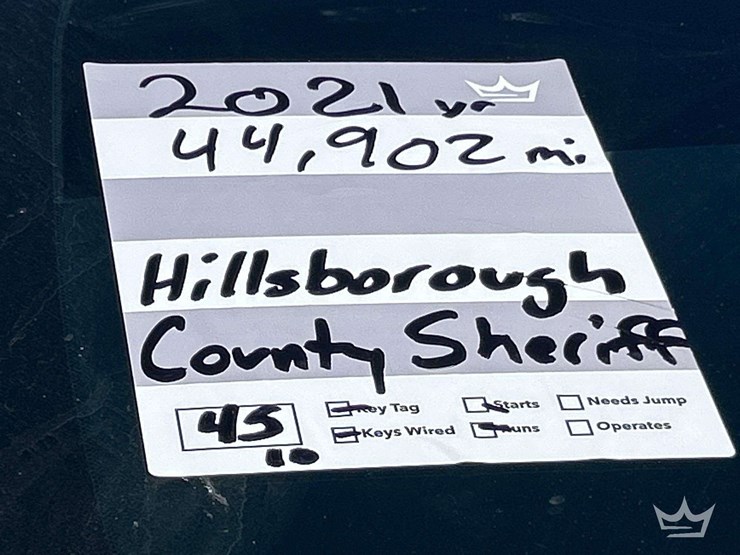 2021 yr
44,902 mi
Hillsborough
County Sheriff
45
10
Key Tag
Starts
Needs Jump
Keys Wired
Runs
Operates